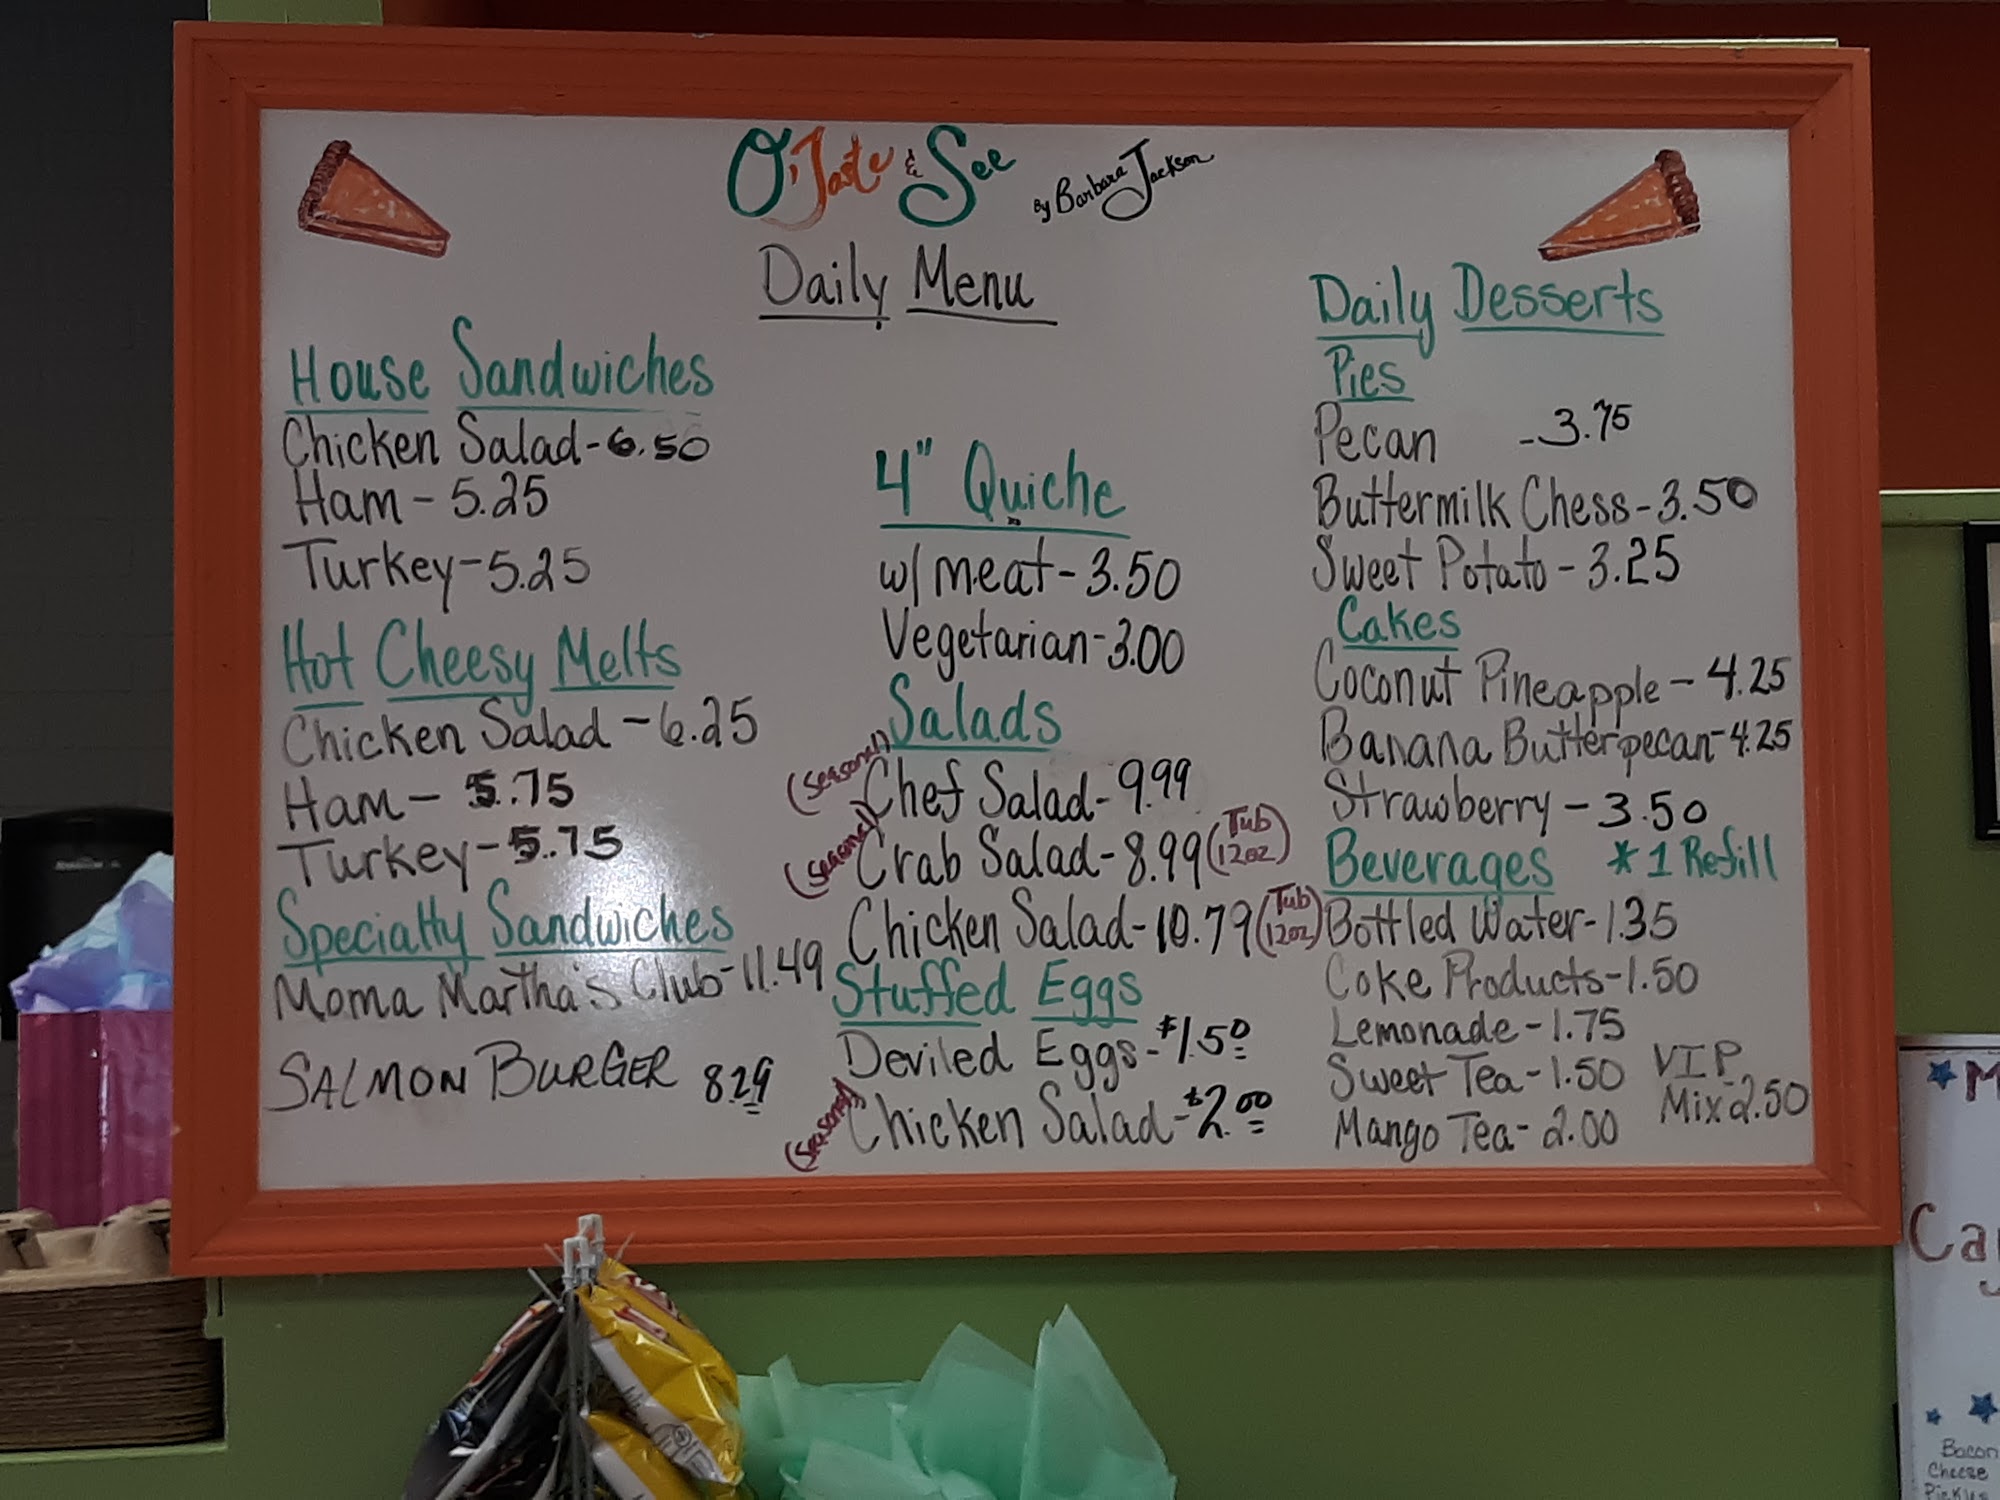 O' Taste & See By Barbara Jackson
Daily Menu
House Sandwiches
Chicken Salad-6.50
Ham-5.25
Turkey-5.25
Hot Cheesy Melts
Chicken Salad-6.25
Ham-5.75
Turkey-5.75
Specialty Sandwiches
Moma Martha's Club-11.49
SALMON BURGER 8.29
4" Quiche
w/ meat-3.50
Vegetarian-3.00
Salads
(seasonal) Chef Salad-9.99
(seasonal) Crab Salad-8.99 (Tub 12oz)
Chicken Salad-10.79 (Tub 12oz)
Stuffed Eggs
Deviled Eggs-$1.50
(seasonal) Chicken Salad-$2.00
Daily Desserts
Pies
Pecan -3.75
Buttermilk Chess-3.50
Sweet Potato-3.25
Cakes
Coconut Pineapple-4.25
Banana Butterpecan-4.25
Strawberry-3.50
Beverages *1 Refill
Bottled Water-1.35
Coke Products-1.50
Lemonade-1.75
Sweet Tea-1.50
Mango Tea-2.00
VIP
Mix 2.50
Bacon
Cheese
Pickles